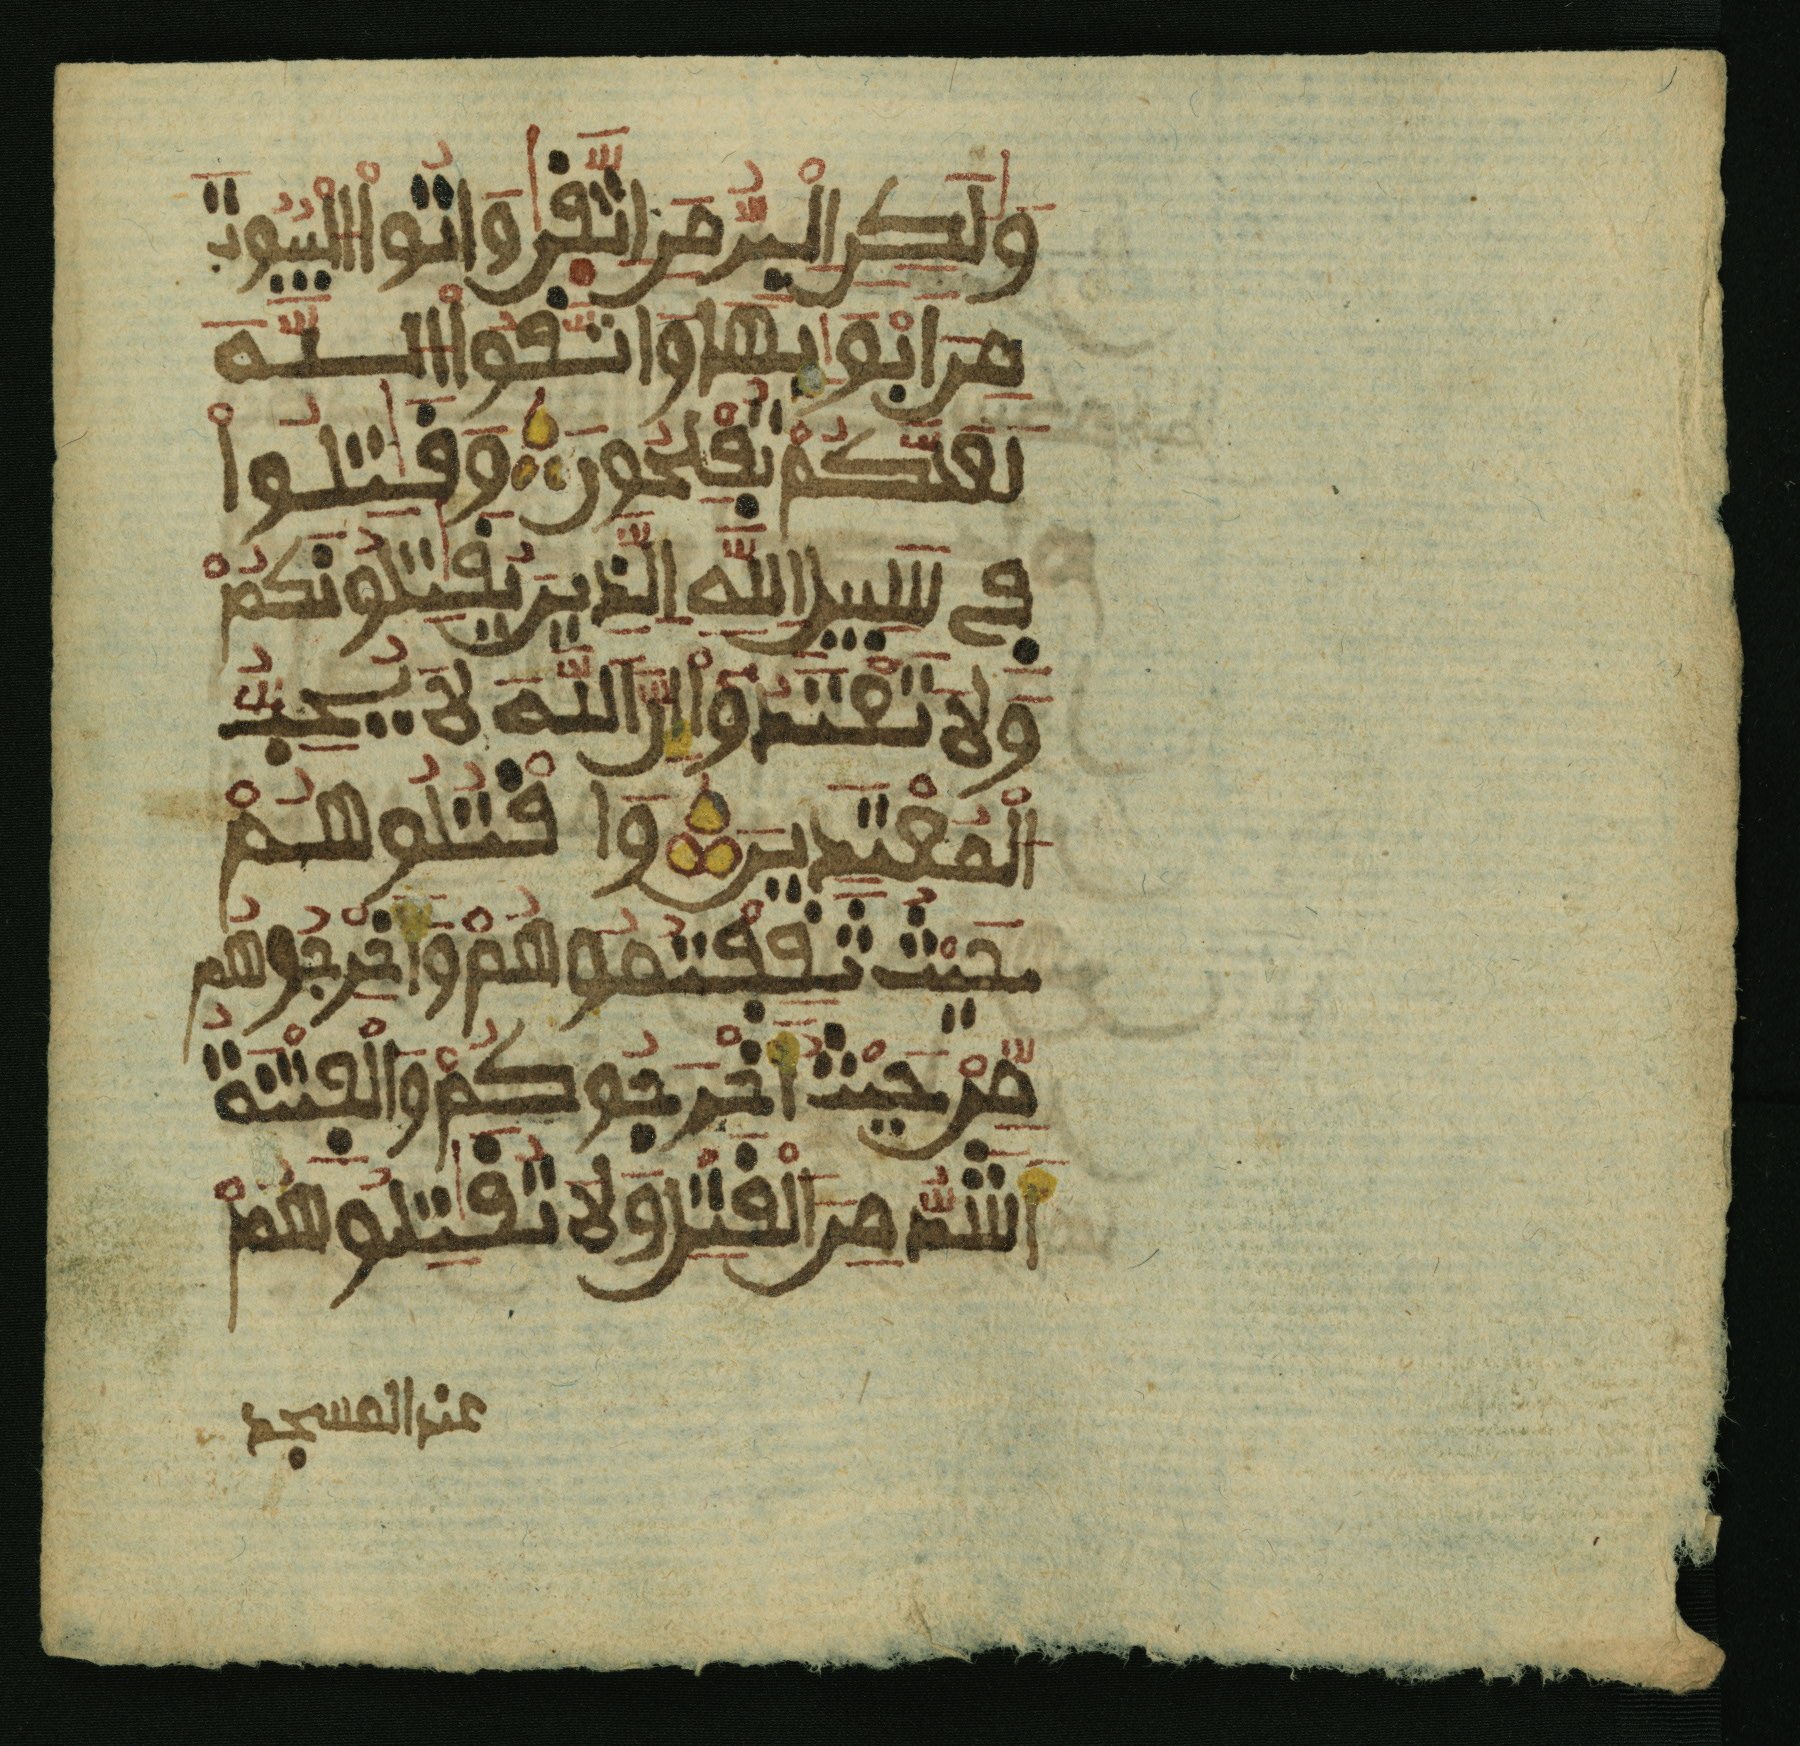 وَلَٰكِنِ اِ۬لْبِرُّ مَنِ اِ۪تَّقٜىٰ وَاتُوا۟ اُ۬لْبُيُوتَ
مِنَ اَبْوَٰبِهَا وَاتَّقُوا۟ اُ۬للَّهَ
لَعَلَّكُمْ تُفْلِحُونَ وَقَٰتِلُوا۟
فِے سَبِيلِ اِ۬للَّهِ اِ۬لذِينَ يُقَٰتِلُونَكُمْ
وَلَا تَعْتَدُوٓا۟ إِنَّ اَ۬للَّهَ لَا يُحِبُّ
اُ۬لْمُعْتَدِينَ وَاقْتُلُوهُمْ
حَيْثُ ثَقِفْتُمُوهُمْ وَأَخْرِجُوهُم
مِّنْ حَيْثُ أَخْرَجُوكُمْ وَالْفِتْنَةُ
أَشَدُّ مِنَ اَ۬لْقَتْلِ وَلَا تُقَٰتِلُوهُمْ
عند المسجد